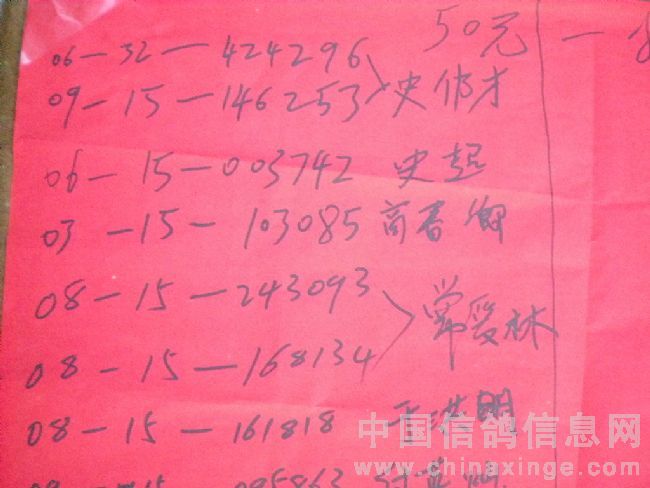 50元 一
06-32-424296
09-15-146253 史作才
06-15-003742 史起
03-15-103085 高春
08-15-243093
常爱林
08-15-168134
08-15-161818 洪明
中国信鸽信息网
www.chinaxinge.com
15 095863